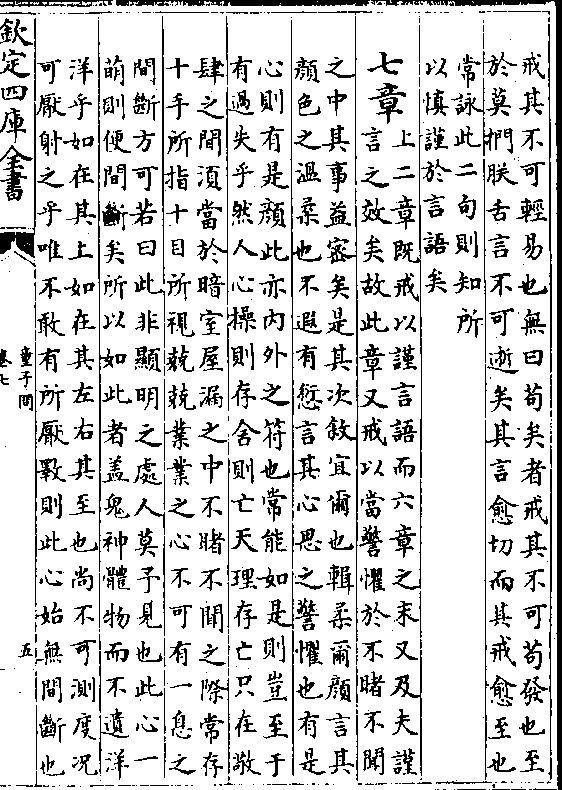 戒其不可輕易也無曰苟矣者戒其不可苟發也至
於莫捫朕舌言不可逝矣其言愈切而其戒愈至也
常詠此二句則知所
以慎謹於言語矣
七章
上二章既戒以謹言語而六章之末又及夫謹
言之效矣故此章又戒以當警懼於不睹不聞
之中其事益密矣是其次敘宜爾也輯柔爾顏言其
顏色之溫柔也不遐有愆言其心思之警懼也有是
心則有是顏此亦内外之符也常能如是則豈至于
有過失乎然人心操則存舍則亡天理存亡只在敬
肆之間須當於暗室屋漏之中不睹不聞之際常存
十手所指十目所視兢兢業業之心不可有一息之
間斷方可若曰此非顯明之處人莫予見也此心一
萌則便間斷矣所以如此者盖鬼神體物而不遺洋
洋乎如在其上如在其左右其至也尚不可測度况
可厭射之乎唯不敢有所厭斁則此心始無間斷也
欽定四庫全書
童子問
卷七
五